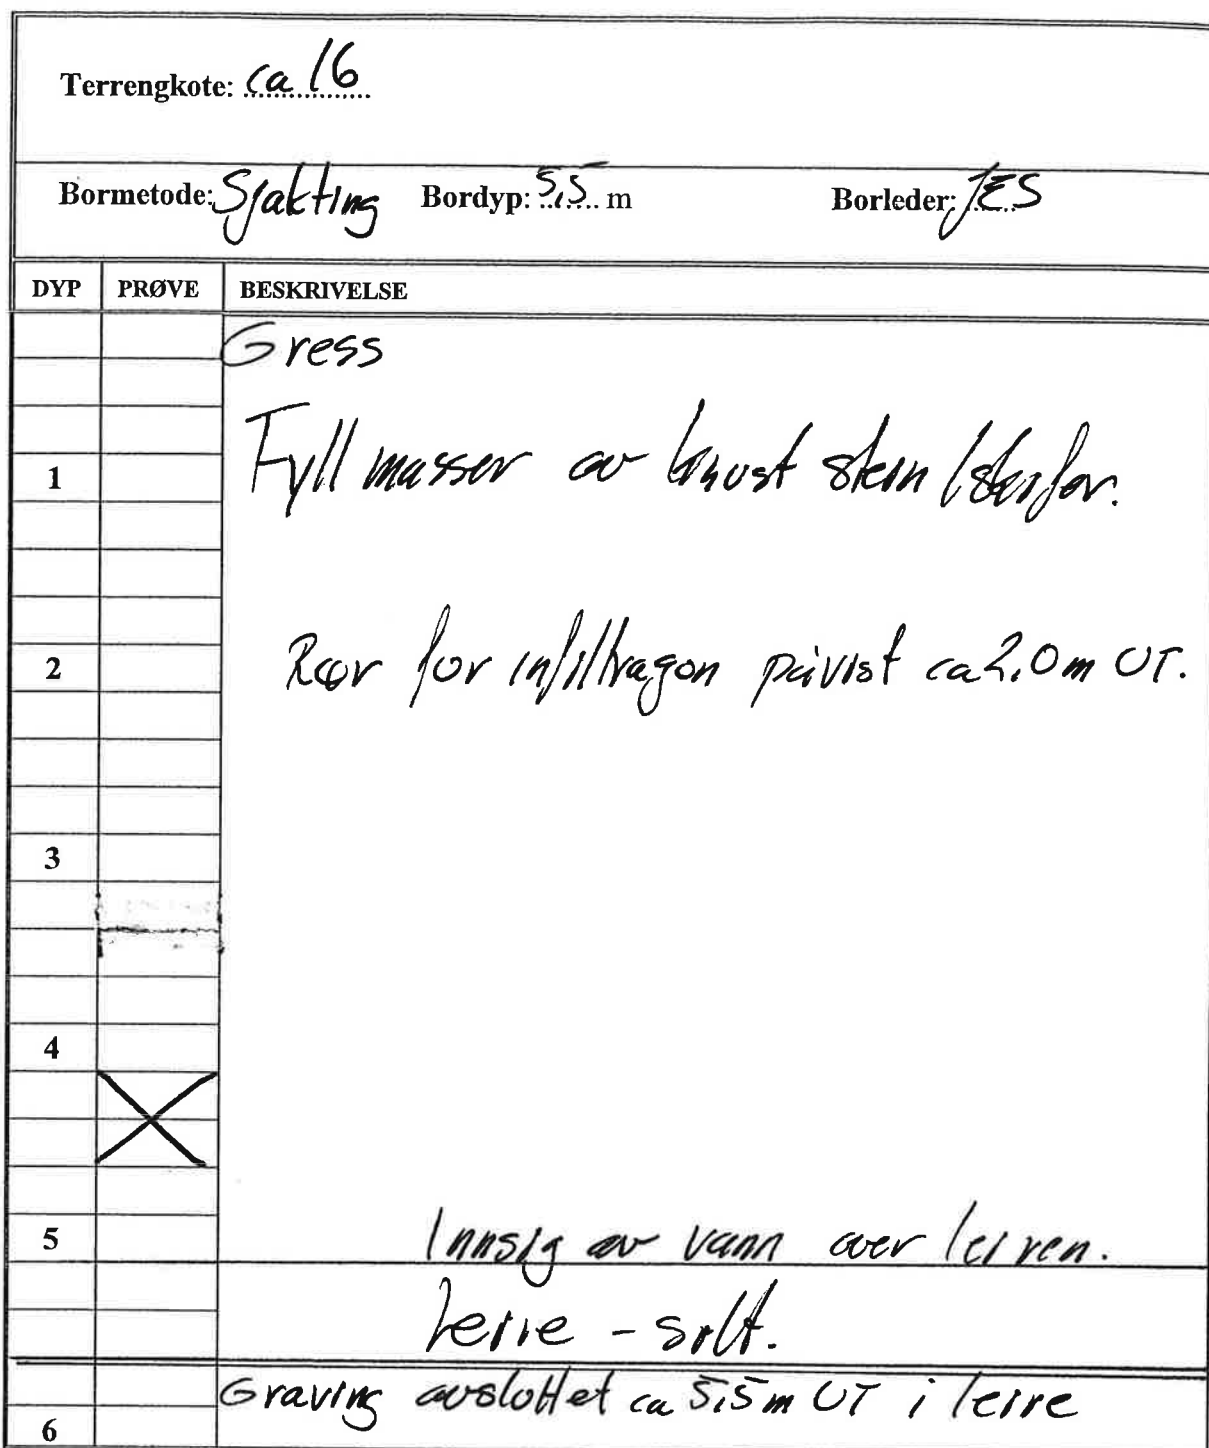 Terrengkote: ca 16
Bormetode: Sjakting Bordyp: 5,5 m Borleder: JES
DYP PRØVE BESKRIVELSE
Gress
1 Fyllmasser av knust stein /
2 Rør for infiltragon påvist ca 2,0 m UT.
3
4
5 Innsig av vann over leiren.
Leire - silt.
Graving avsluttet ca 5,5 m UT i leire
6